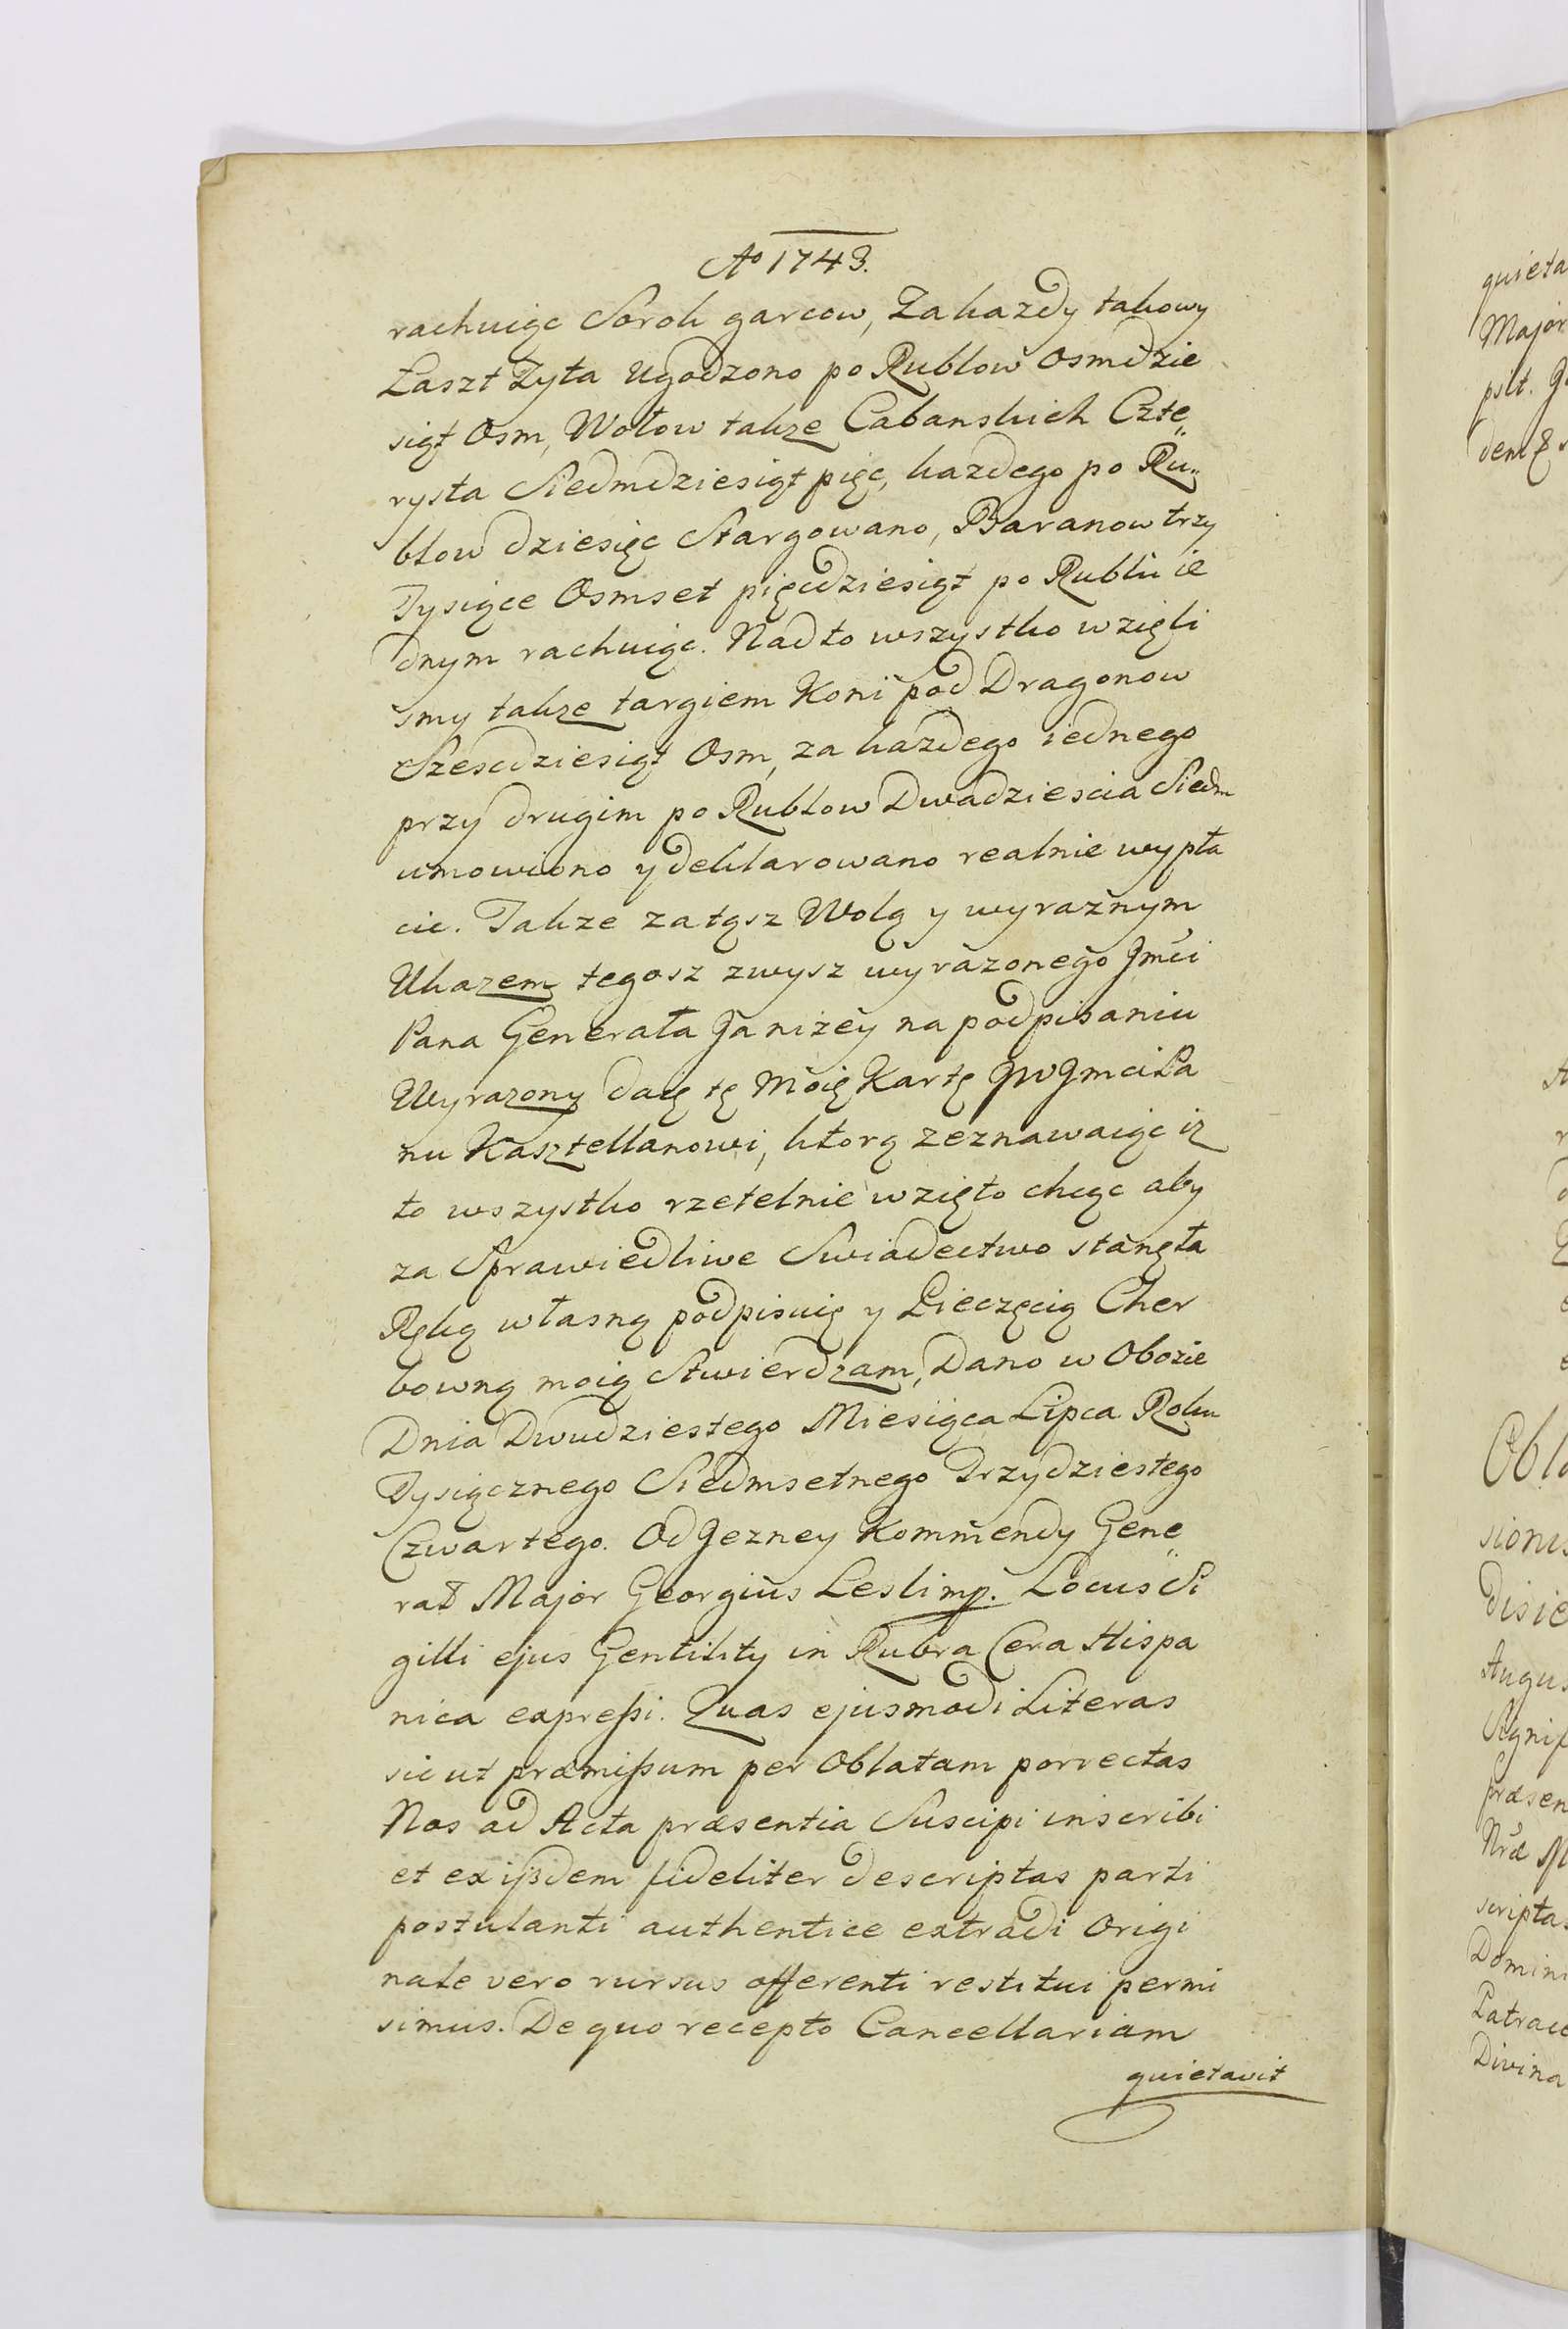 Ao 1743.
rachuiąc Sorok garcow, Za każdy takowy
Łaszt Żyta Ugodzono po Rublow Osmdzie
siąt Osm, Wołow takze Cabanskich Czte„
rysta Siedmdziesiąt pięc, kazdego po Ru„
blow dziesięc Stargowano, Baranow trzy
Tysiące Osmset pięcdziesiąt po Rublu ie
dnym rachuiąc. Nad to wszystko wzięli
smy takze targiem Koni pod Dragonow
Szescdziesiąt Osm, za kazdego iednego
przy drugim po Rublow Dwadziescia Siedm
umowiono y deklarowano realnie wypła
cic. Takze za tąsz Wolą y wyraznym
Ukazem tegosz zwysz wyrazonego Jmci
Pana Generała Ja nizey na podpisaniu
Wyrazony daię tę Moię Kartę JWJmci Pa
nu Kasztellanowi, ktorą zeznawaiąc iz
to wszystko rzetelnie wzięto chcąc aby
za Sprawiedliwe Swiadectwo stanęła
Ręką własną podpisuię y Pieczęcią Cher
bowną moią Stwierdzam, Dano w Obozie
Dnia Dwudziestego Miesiąca Lipca Roku
Tysiącznego Siedmsetnego Trzydziestego
Czwartego. Od Jezney Kommendy Gene„
rał Major Georgius Lesli mp. Locus Si
gilli ejus Gentility in Rubra Cera Hispa
nica expressi. Quas ejusmodi Literas
sicut præmissum per Oblatam porrectas
Nos ad Acta præsentia Suscipi inscribi
et ex ijsdem fideliter descriptas parti
postulanti authentice extradi Origi
nale vero rursus offerenti restitui permi
simus. De quo recepto Cancellariam
quietavit
quieta
Major
pslt.
Oblа
sionis
disie
Augus
Signif
præsen
Nræ
scriptas
Domini
Patrac
Divina